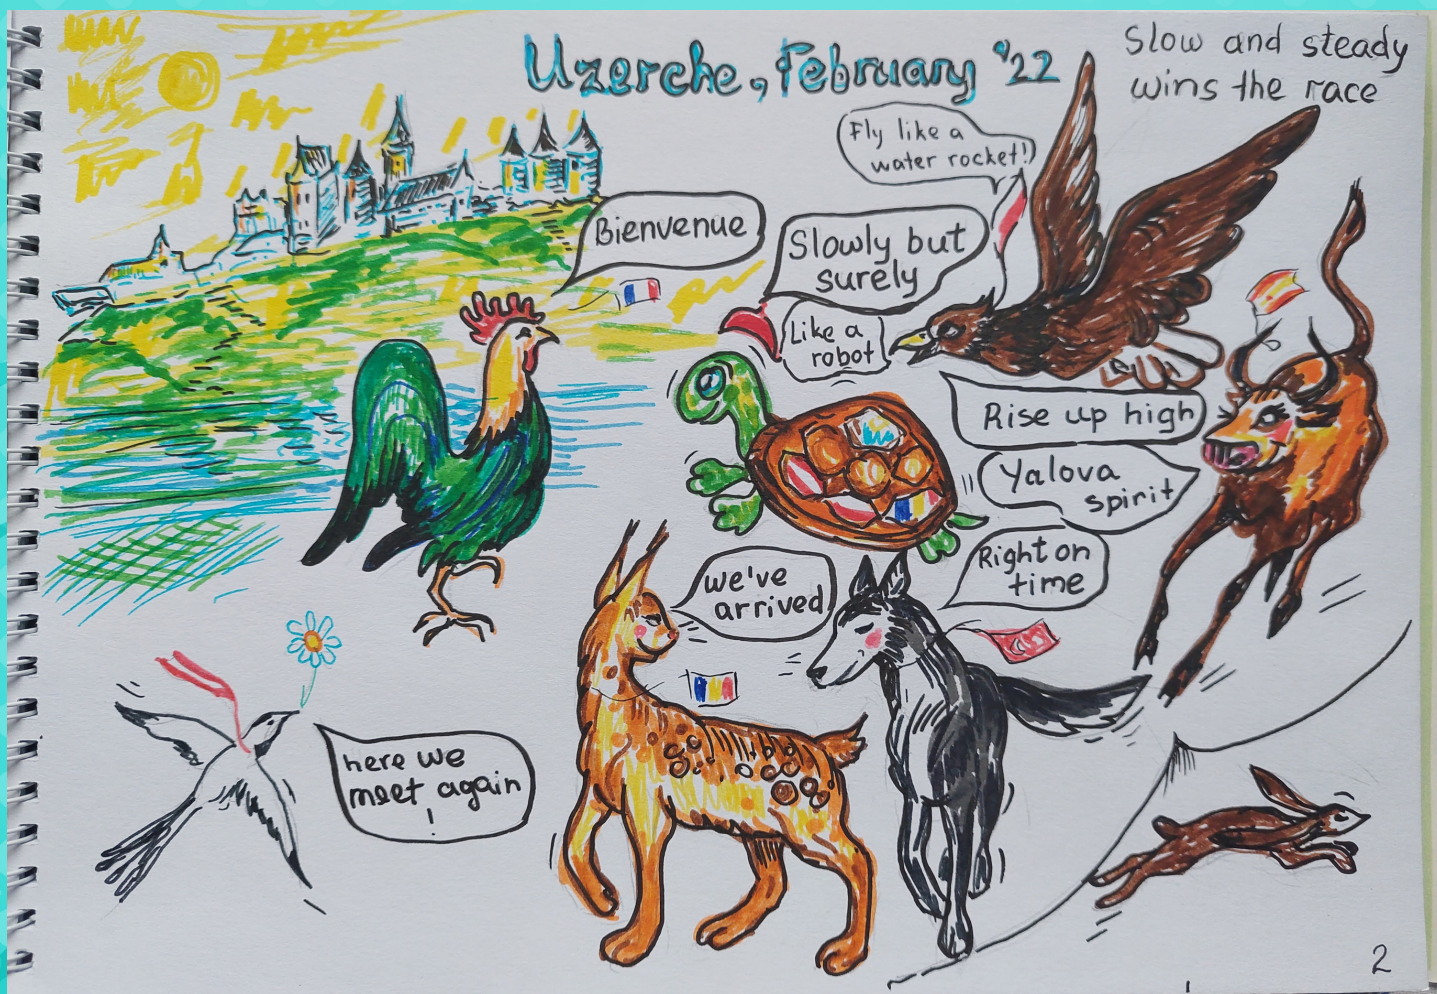 Uzerche, February '22
Slow and steady
wins the race
Fly like a
water rocket!
Bienvenue
Slowly but
surely
Like a
robot
Rise up high
Yalova
spirit
Right on
time
we've
arrived
here we
meet again
!
2